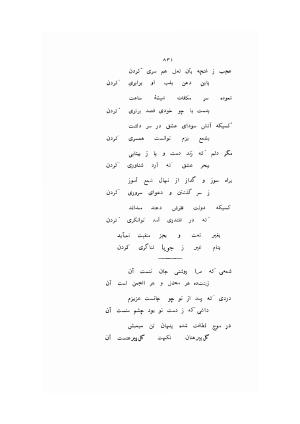 ۸۳۱
عجب ز غنچه بآن لعل هم سری کردن
باین دهن بلب او برابری کردن
نموده سر مکافات شیشهٔ ساعت
بدست با چو خودی قصد برتری کردن
کسیکه آتش سودای عشق در سر داشت
بشمع بزم توانست همسری کردن
مگر دلم که زند دست و پا ز بیتابی
ببحر عشق که آرد شناوری کردن
براه سوز و گداز از نهال شمع آموز
ز سر گذشتن و دعوای سروری کردن
کسیکه دولت فقرش دهند میداند
که در قلندری آمد توانگری کردن
بغیر نعت و بجز منقبت نمیآید
بنام غیر ز جویا ثناگری کردن
شمعی که سراپا روشنی جان تنست آن
زیبنده در محفل و در انجمن است آن
دردی که رسد از تو چو جانست عزیزم
داغی که ز دست تو بود چشم منست آن
در موج لطافت شده پنهان تن سیمینش
گل‌پیرهنان نکهت گل‌پیرهنست آن